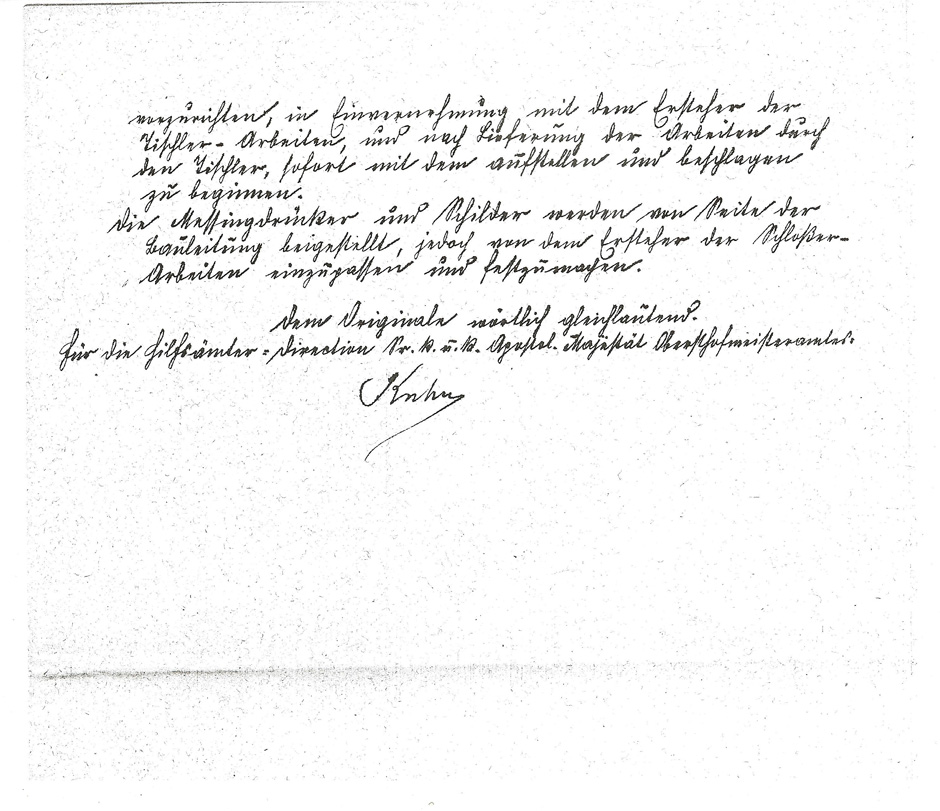 vorzurichten, in Einvernehmung mit dem Ersteher der
Tischler-Arbeiten, und nach Lieferung der Arbeiten durch
den Tischler, sofort mit dem aufstellen und beschlagen
zu beginnen.
Die Messingdrücker und Schilder werden von Seite der
Bauleitung beigestellt, jedoch von dem Ersteher der Schloßer-
Arbeiten einzupassen und festzumachen.
Dem Originale wörtlich gleichlautend.
Für die Hilfsämter-Direction Sr. k. u. k. Apostol. Majestät Obersthofmeisteramtes:
Kuhn